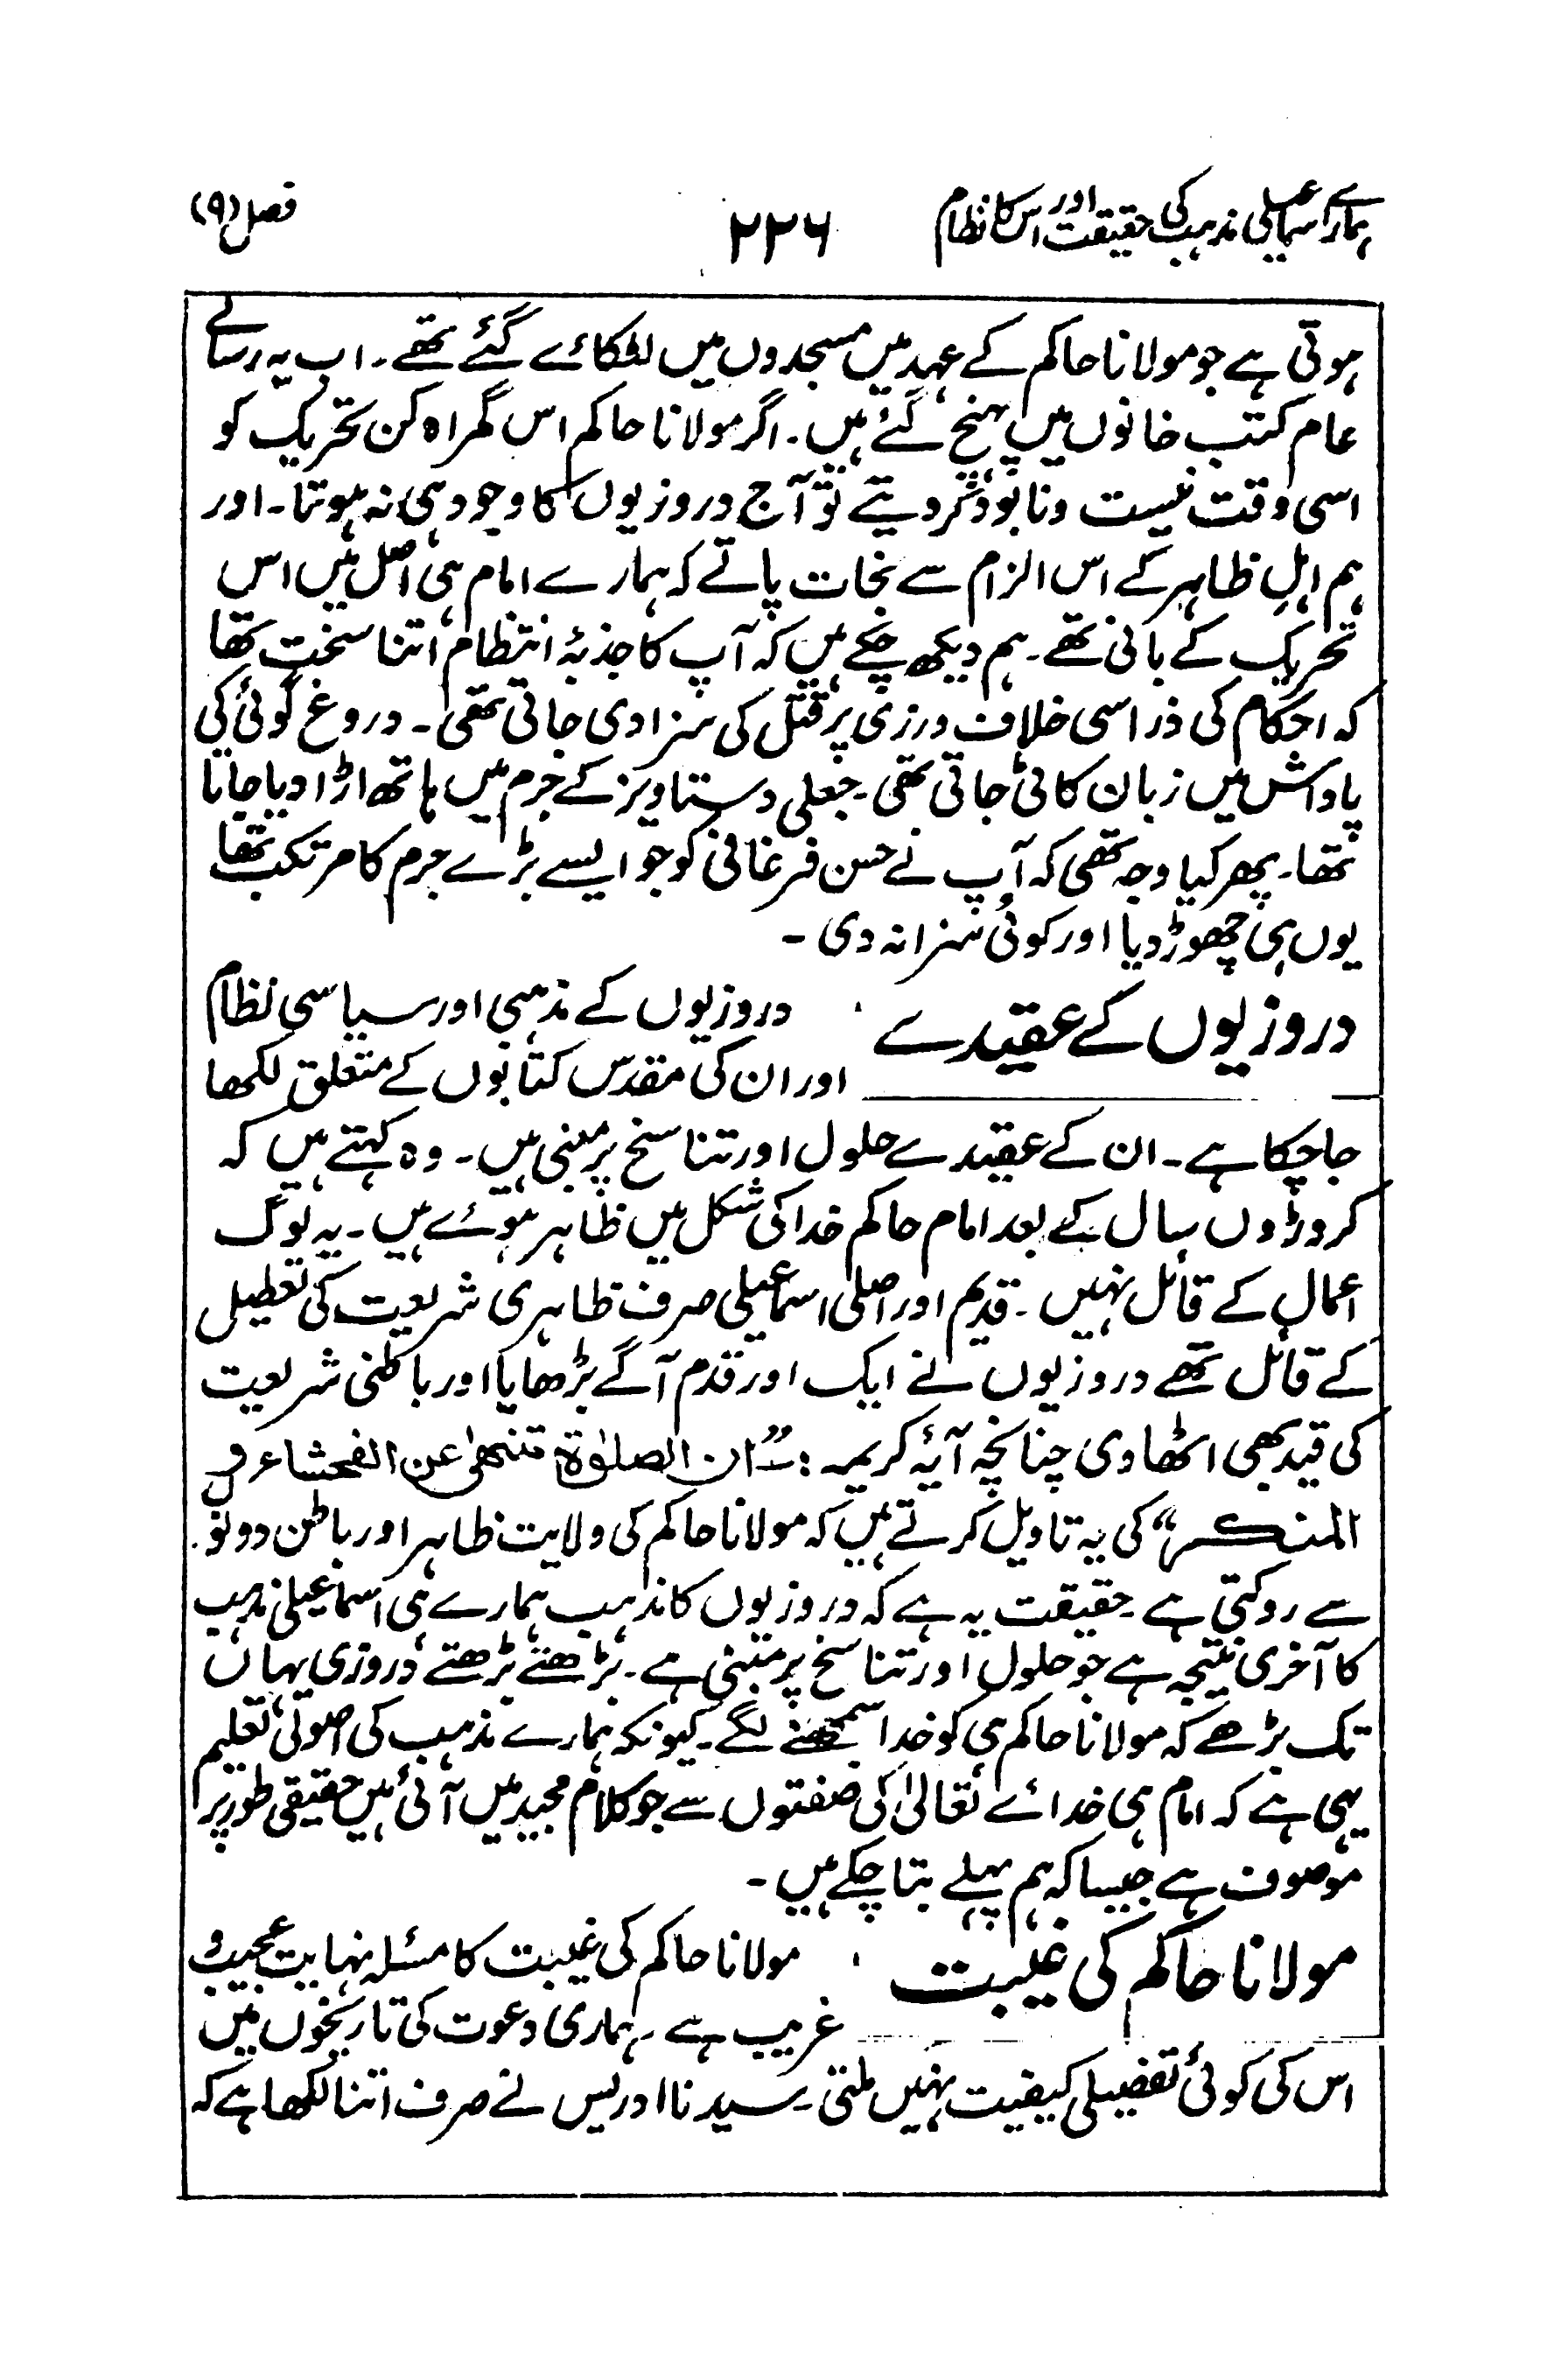 ہمارے اسماعیلی مذہب کی حقیقت اور اس کا نظام ۲۲۶ فصل (۹)
ہوتی ہے جو مولانا حاکم کے عہد میں مسجدوں میں لٹکائے گئے تھے۔ اب یہ رسالے
عام کتب خانوں میں پہنچ گئے ہیں۔ اگر مولانا حاکم اس گمراہ کن تحریک کو
اسی وقت نیست و نابود کر دیتے تو آج دروزیوں کا وجود ہی نہ ہوتا۔ اور
ہم اہلِ ظاہر کے اس الزام سے نجات پاتے کہ ہمارے امام ہی اصل میں اس
تحریک کے بانی تھے۔ ہم دیکھ چکے ہیں کہ آپ کا جذبۂ انتظام اتنا سخت تھا
کہ احکام کی ذرا سی خلاف ورزی پر قتل کی سزا دی جاتی تھی۔ دروغ گوئی کی
پاداش میں زبان کاٹی جاتی تھی۔ جعلی دستاویز کے جرم میں ہاتھ اڑا دیا جاتا
تھا۔ پھر کیا وجہ تھی کہ آپ نے حسن فرغانی کو جو ایسے بڑے جرم کا مرتکب تھا
یوں ہی چھوڑ دیا اور کوئی سزا نہ دی ۔
دروزیوں کے عقیدے دروزیوں کے مذہبی اور سیاسی نظام
اور ان کی مقدس کتابوں کے متعلق لکھا
جا چکا ہے۔ ان کے عقیدے حلول اور تناسخ پر مبنی ہیں۔ وہ کہتے ہیں کہ
کروڑوں سال کے بعد امام حاکم خدا کی شکل میں ظاہر ہوئے ہیں۔ یہ لوگ
اعمال کے قائل نہیں۔ قدیم اور اصلی اسماعیلی صرف ظاہری شریعت کی تعطیل
کے قائل تھے دروزیوں نے ایک اور قدم آگے بڑھایا اور باطنی شریعت
کی قید بھی اٹھا دی چنانچہ آیۂ کریمہ :۔ "ان الصلوٰۃ تنھیٰ عن الفحشاء و
المنکر" کی یہ تاویل کرتے ہیں کہ مولانا حاکم کی ولایت ظاہر اور باطن دونو
سے روکتی ہے۔ حقیقت یہ ہے کہ دروزیوں کا مذہب ہمارے ہی اسماعیلی مذہب
کا آخری نتیجہ ہے جو حلول اور تناسخ پر مبنی ہے۔ بڑھتے بڑھتے دروزی یہاں
تک بڑھے کہ مولانا حاکم ہی کو خدا سمجھنے لگے۔ کیونکہ ہمارے مذہب کی اصولی تعلیم
یہی ہے کہ امام ہی خدائے تعالیٰ کی صفتوں سے جو کلام مجید میں آئی ہیں حقیقی طور پر
موصوف ہے جیسا کہ ہم پہلے بتا چکے ہیں ۔
مولانا حاکم کی غیبت مولانا حاکم کی غیبت کا مسئلہ نہایت عجیب و
غریب ہے۔ ہماری دعوت کی تاریخوں میں
اس کی کوئی تفصیلی کیفیت نہیں ملتی۔ سیدنا ادریس نے صرف اتنا لکھا ہے کہ